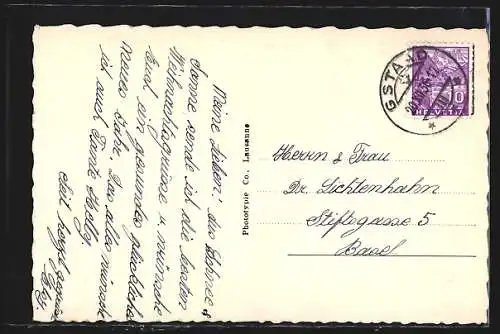 Meine Lieben! Aus Schnee &
Sonne sende ich die besten
Weihnachtsgrüsse u. wünsche
Euch ein gesundes glückliches
neues Jahr. Das alles wünscht
ich auch Tante
Mit herzl.
Phototypie Co., Lausanne
GSTAAD
10
HELVETIA
Herrn & Frau
Dr. Lichtenhahn
Stiftsgasse 5
Basel